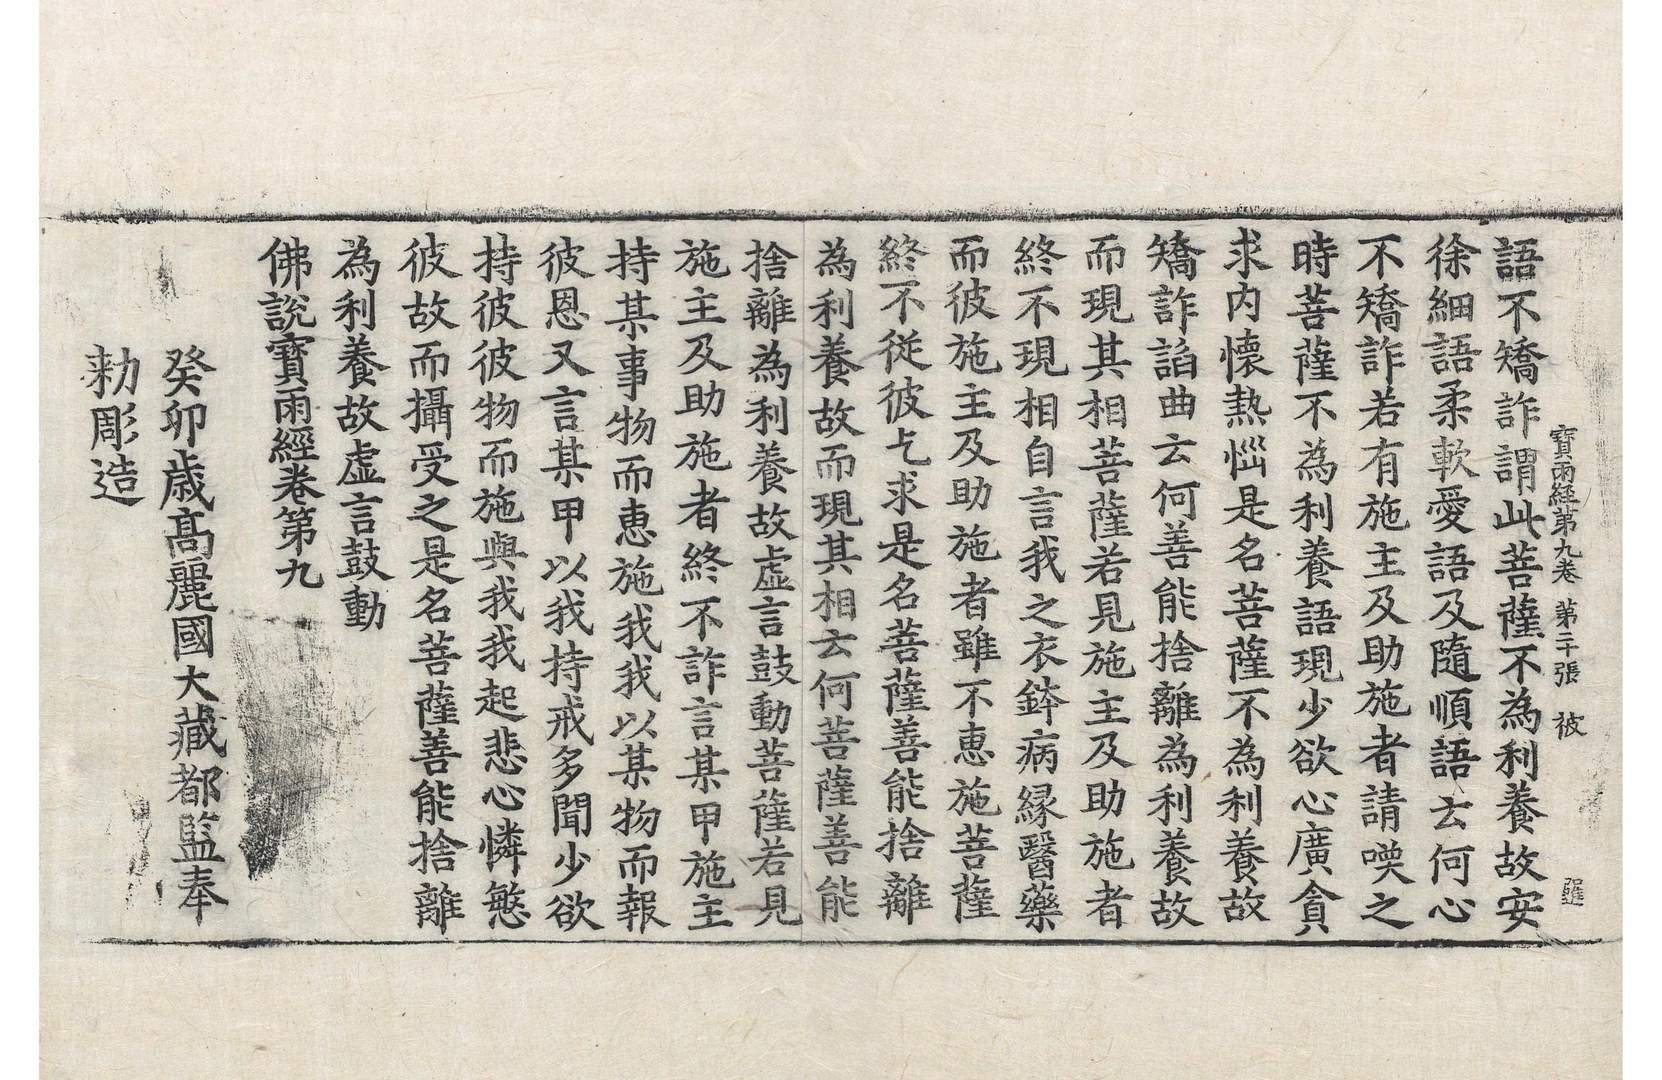 寶雨經第九卷 第二十張 被
語不矯詐謂此菩薩不為利養故安
徐細語柔軟愛語及隨順語云何心
不矯詐若有施主及助施者請喚之
時菩薩不為利養語現少欲心廣貪
求內懷熱惱是名菩薩不為利養故
矯詐諂曲云何善能捨離為利養故
而現其相菩薩若見施主及助施者
終不現相自言我之衣鉢病縁醫藥
而彼施主及助施者雖不惠施菩薩
終不從彼乞求是名菩薩善能捨離
為利養故而現其相云何菩薩善能
捨離為利養故虛言鼓動菩薩若見
施主及助施者終不詐言某甲施主
持某事物而惠施我我以某物而報
彼恩又言某甲以我持戒多聞少欲
持彼彼物而施與我我起悲心憐愍
彼故而攝受之是名菩薩善能捨離
為利養故虛言鼓動
佛說寶雨經卷第九
癸卯歲高麗國大藏都監奉
勑彫造